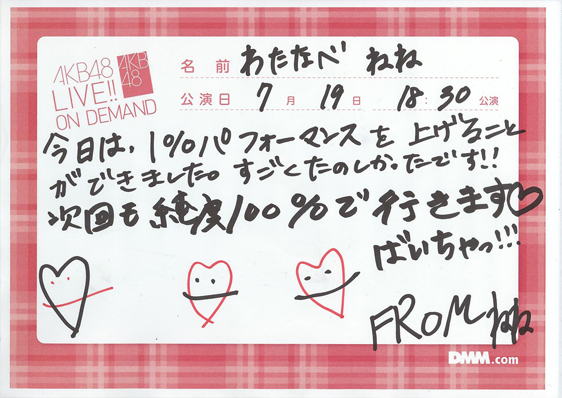 AKB48
LIVE!!
ON DEMAND
AKB
48
名前 わたなべ ねね
公演日 7月 19日 18:30 公演
今日は、1%パフォーマンスを上げること
ができました。すごくたのしかったです!!
次回も純度100%で行きます♡
ばいちゃっ!!!
FROM ねね
DMM.com